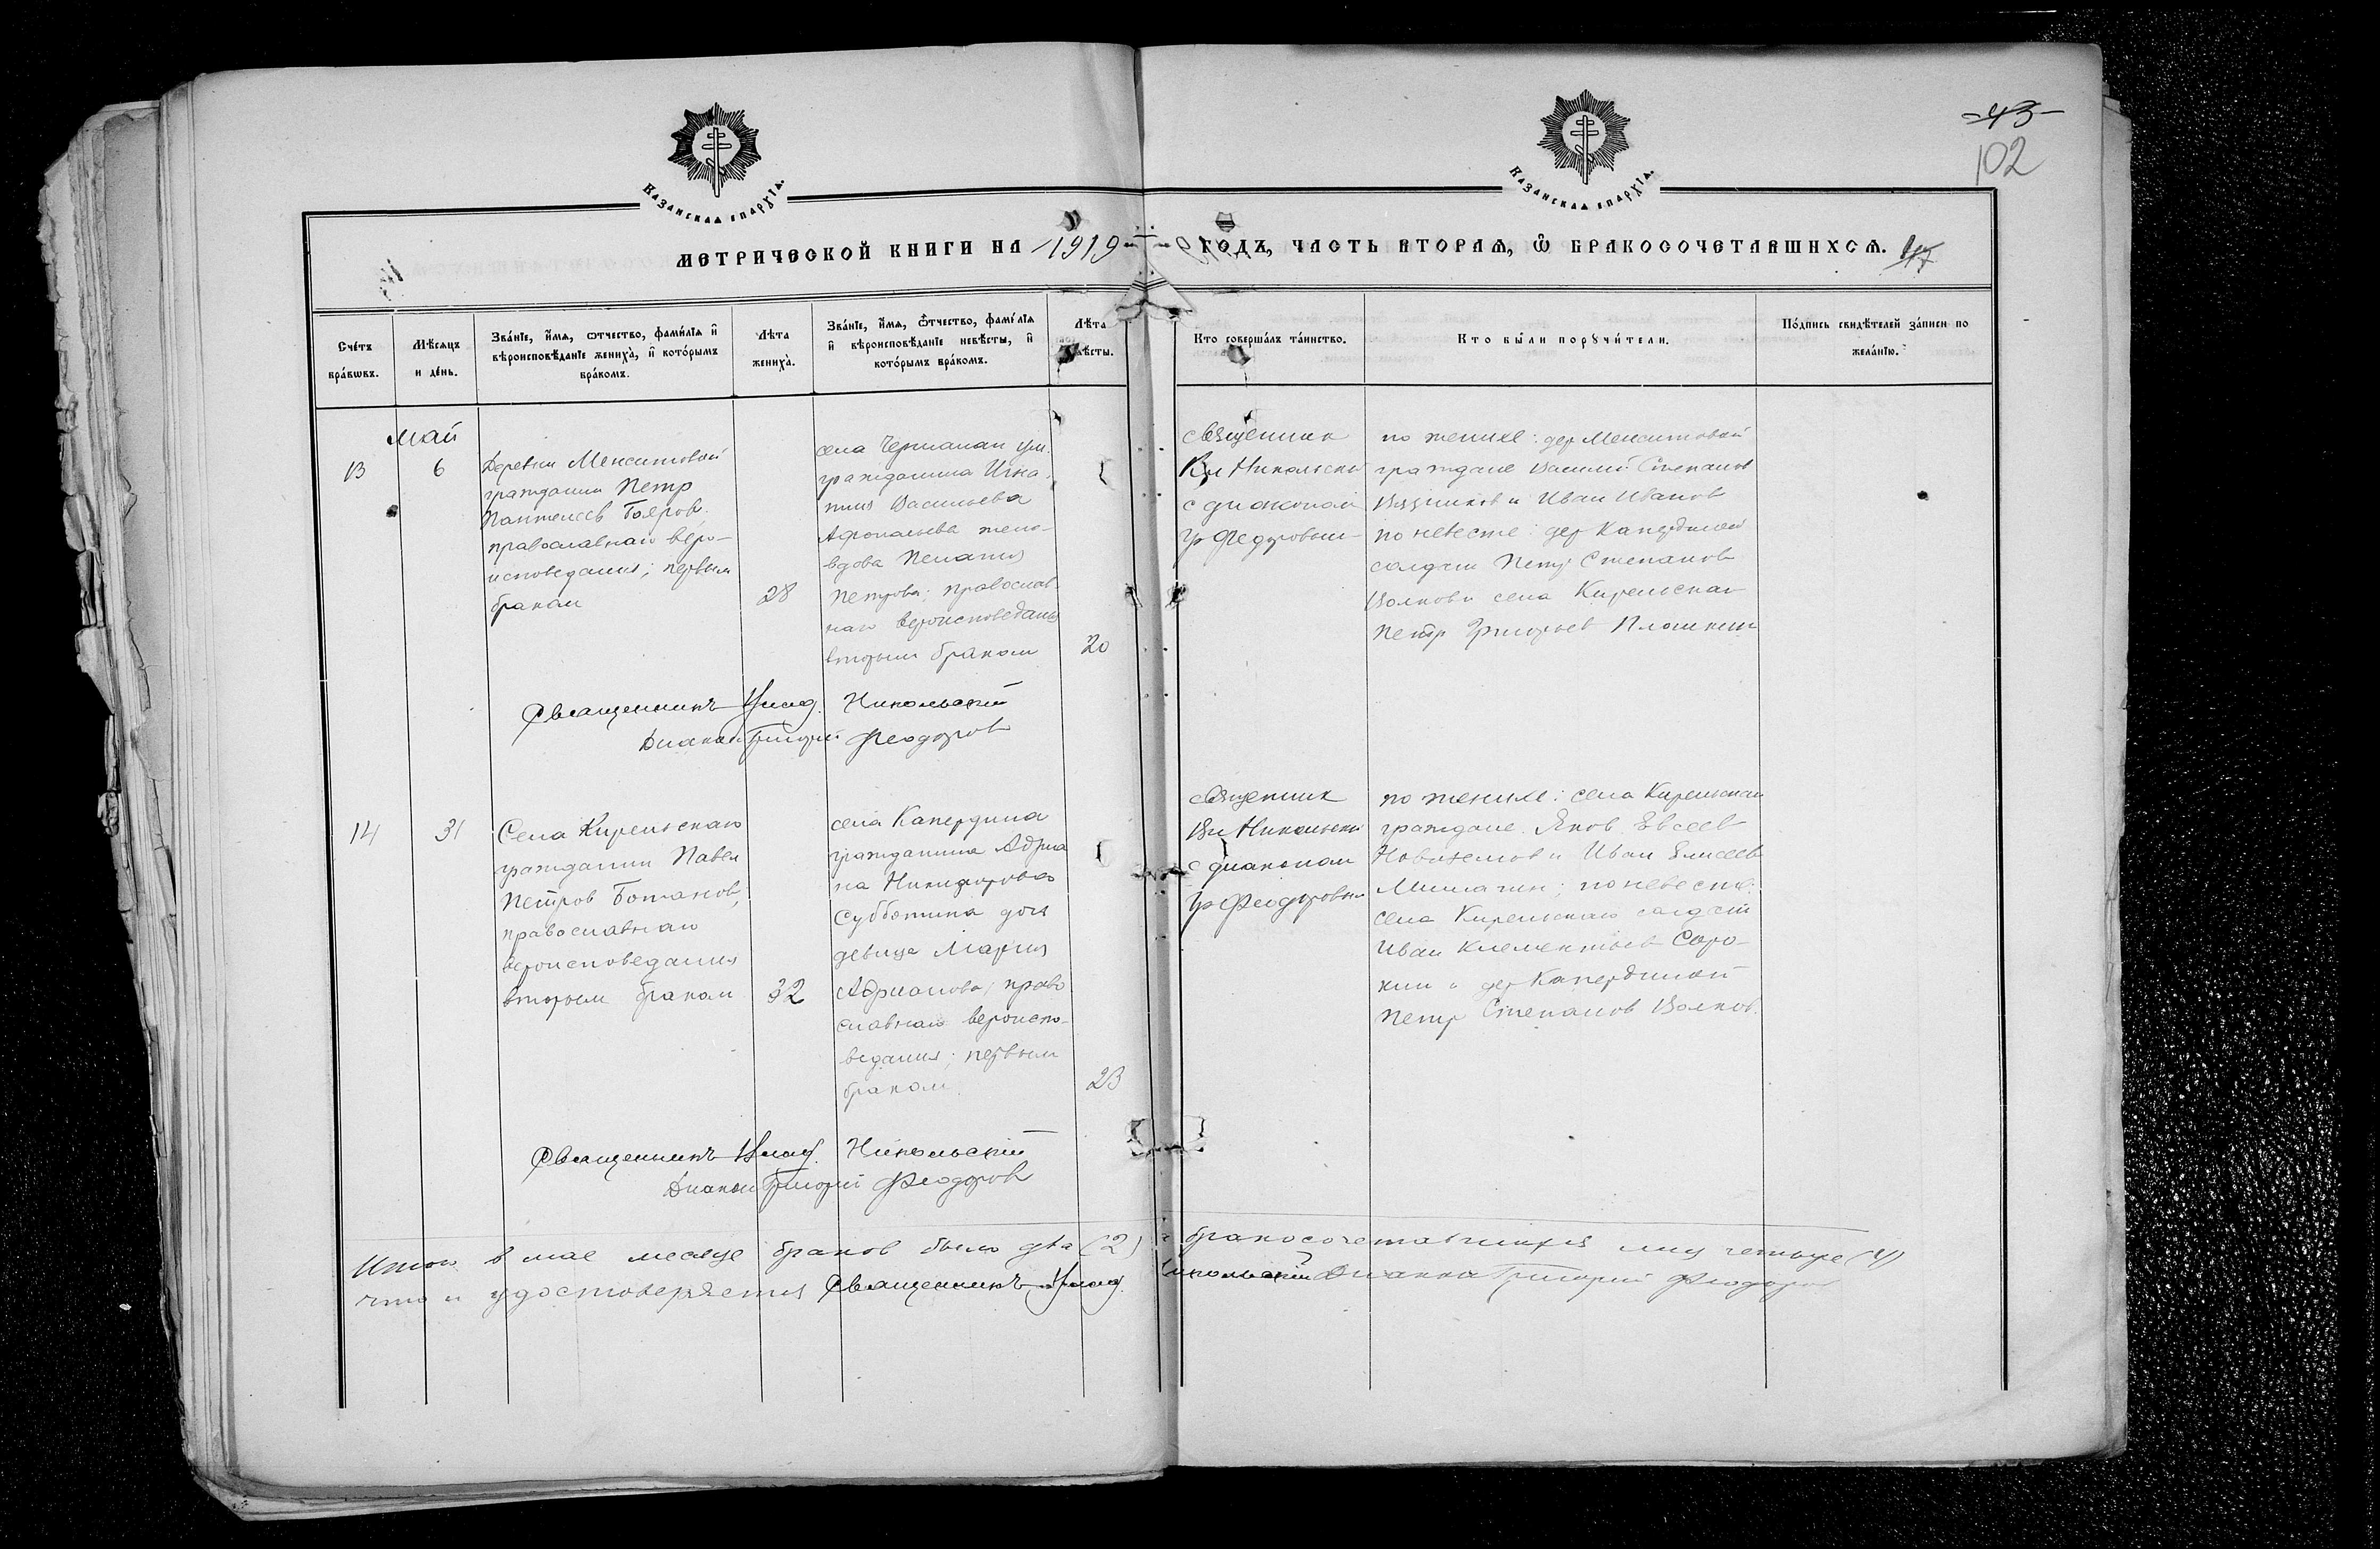 Казанская епархіа.
Казанская епархіа.
43
102
метрической книги на 1919 годъ, часть вторая, ѡ бракосочетавшихся.
47
Сче́тъ бра́кѡвъ.
Мѣ́сяцъ и де́нь.
Зва́нїе, и҆́мя, ѻтчество, фами́лїя и҆ вѣроисповѣ́данїе жениха̀, и҆ кото́рымъ бра́комъ.
Лѣ́та жениха̀.
Зва́нїе, и҆́мя, ѻ҆́тчество, фами́лїя и҆ вѣроисповѣ́данїе невѣ́сты, и҆ кото́рымъ бра́комъ.
Лѣ́та
Кто соверша́лъ та́инство.
Кто бы́ли порꙋчи́тели.
По́дпись свидѣ́телей за́писи по жела́нїю.
Май
13
6
Деревни Менситовой
гражданин Петр
Пантелеев Бояров,
православнаго веро-
исповедания; первым
браком
28
села
гражданина Игна-
тия Васильева
Афонасьева жена-
вдова Пелагия
Петрова; православ-
наго вероисповедания
вторым браком
20
священник
Вл Никольский
с диаконом
Гр Федоровым
по женихе: дер Менситовой
граждане Василий Степанов
и Иван Иванов
по невесте: дер Капердиной
солдат Петр Степанов
Волков и села Кирельскаго
Петр Григорьев Плашкин
Священникъ Влад. Никольский
Диакон Григорий Феодоров
14
31
Села Кирельскаго
гражданин Павел
Петров Ботанов,
православнаго
вероисповедания
вторым браком
32
села Капердина
гражданина Адриа
на Никифорова
Субботина дочь
девица Мария
Адрианова; право
славнаго вероиспо-
ведания; первым
браком
23
священник
Вл Никольский
с диаконом
Гр Феодоровым
по женихе: села Кирельскаго
граждане Яков Евсеев
и Иван Елисеев
Мишагин; по невесте:
села Кирельскаго солдат
Иван Клементьев Соро-
кин и дер Капердиной
Петр Степанов Волков.
Священникъ Влад. Никольский
Диакон Григорий Феодоров
Итого в мае месяце браков было два (2) и бракосочетавшихся лиц четыре (4)
что и удостоверяется Священникъ Влад. Никольский Диакон Григорий Феодоров